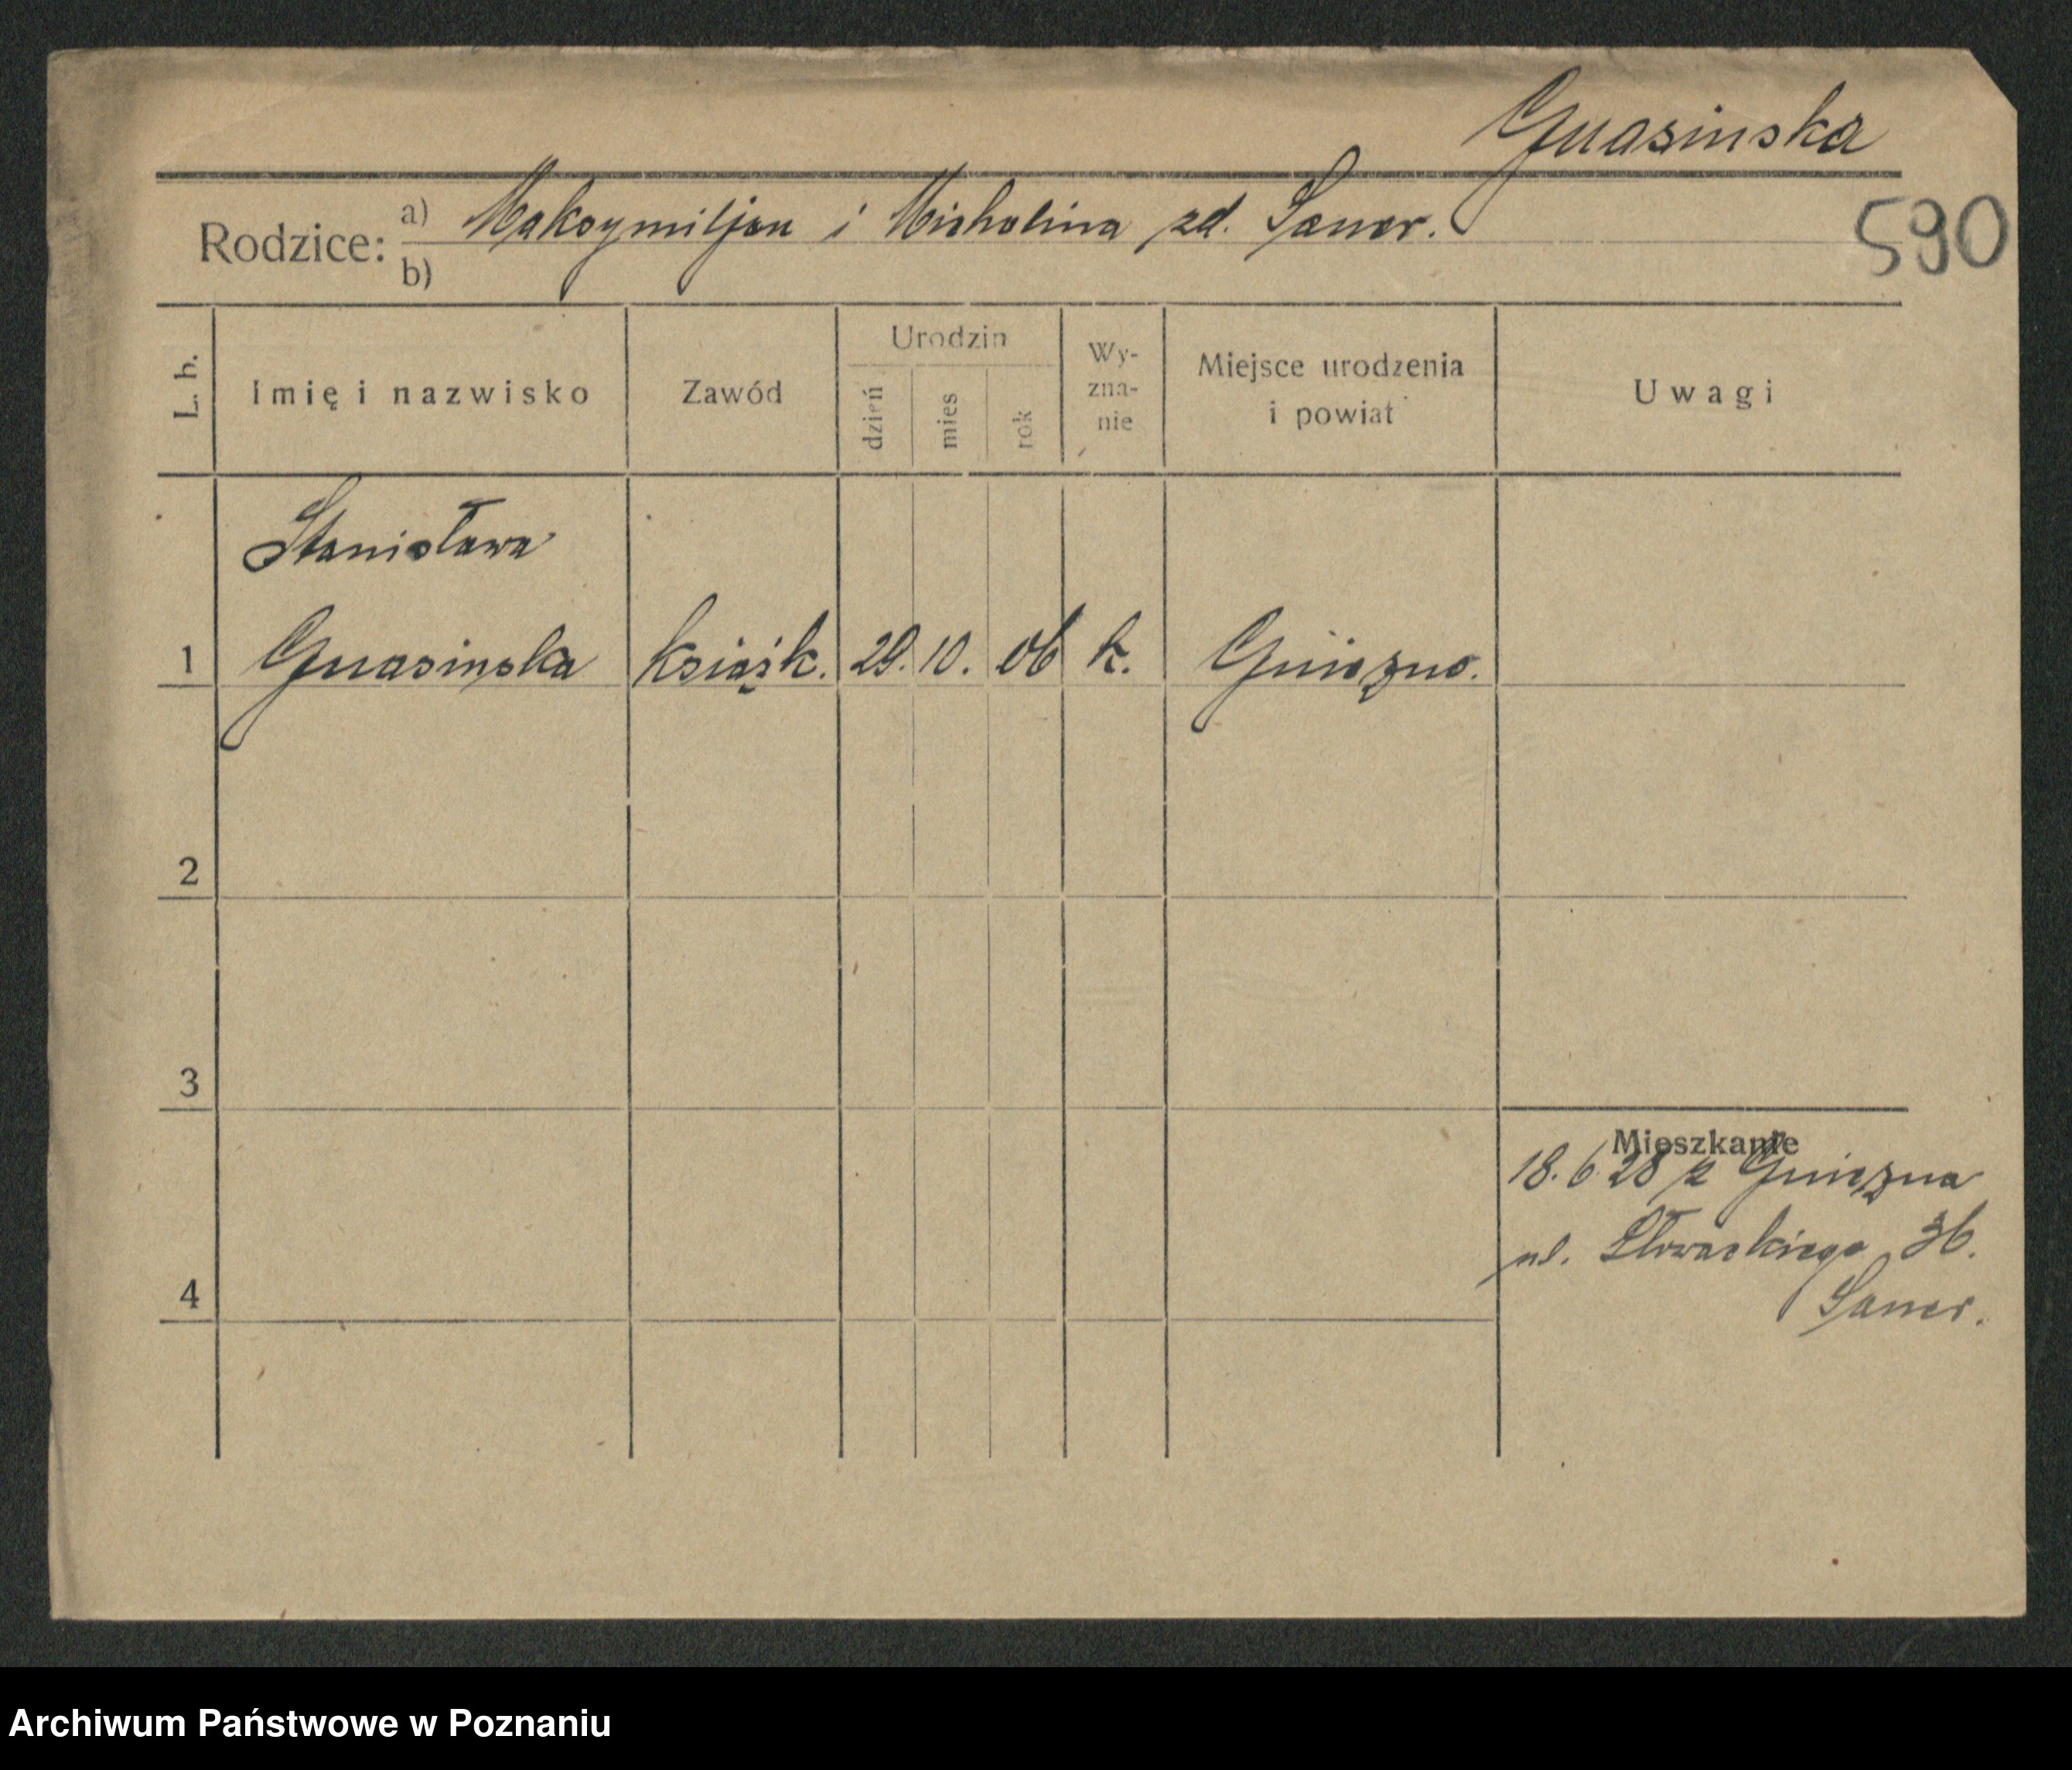 Gnasinska
590
Rodzice: a) Maksymiljan i Michalina zd. Saner.
b)
L. b.
Imię i nazwisko
Zawód
Urodzin
dzień
mies
rok
Wy-
zna-
nie
Miejsce urodzenia
i powiat
Uwagi
Stanisława
1 Gnasinska książk. 29. 10. 06 k. Gniezno.
2
3
4
Mieszkanie
18. 6 28 z Gniezna
ul. Słowackiego 36.
Saner.
Archiwum Państwowe w Poznaniu